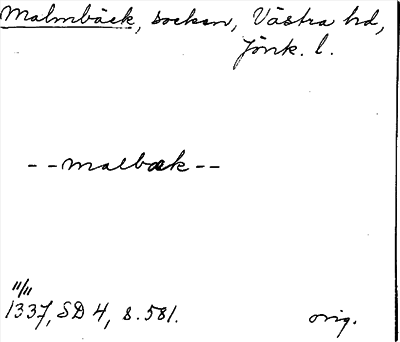 Malmbäck, socken, Västra hd,
Jönk. l.
- - malbæk - -
11/11
1337, SD 4, s. 581.
orig.